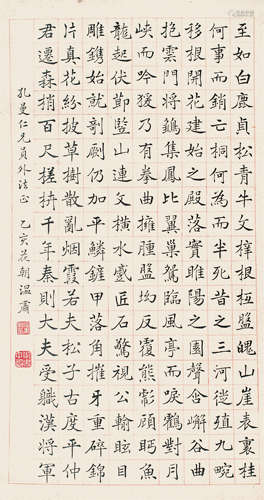 至如白鹿貞松青牛文梓根柢盤魄山崖表裏桂
何事而銷亡桐何為而半死昔之三河徙殖九畹
移根開花建始之殿落實睢陽之園聲含嶰谷曲
抱雲門將鶵集鳳比翼巢鴛臨風亭而唳鶴對月
峽而吟猨乃有拳曲擁腫盤坳反覆熊彪顧眄魚
龍起伏節豎山連文橫水蹙匠石驚視公輸眩目
雕鎸始就剞劂仍加平鱗鏟甲落角摧牙重碎錦
片真花紛披草樹散亂烟霞若夫松子古度平仲
君遷森梢百尺槎枿千年秦則大夫受職漢將軍
孔曼仁兄員外法正 乙亥花朝溫肅